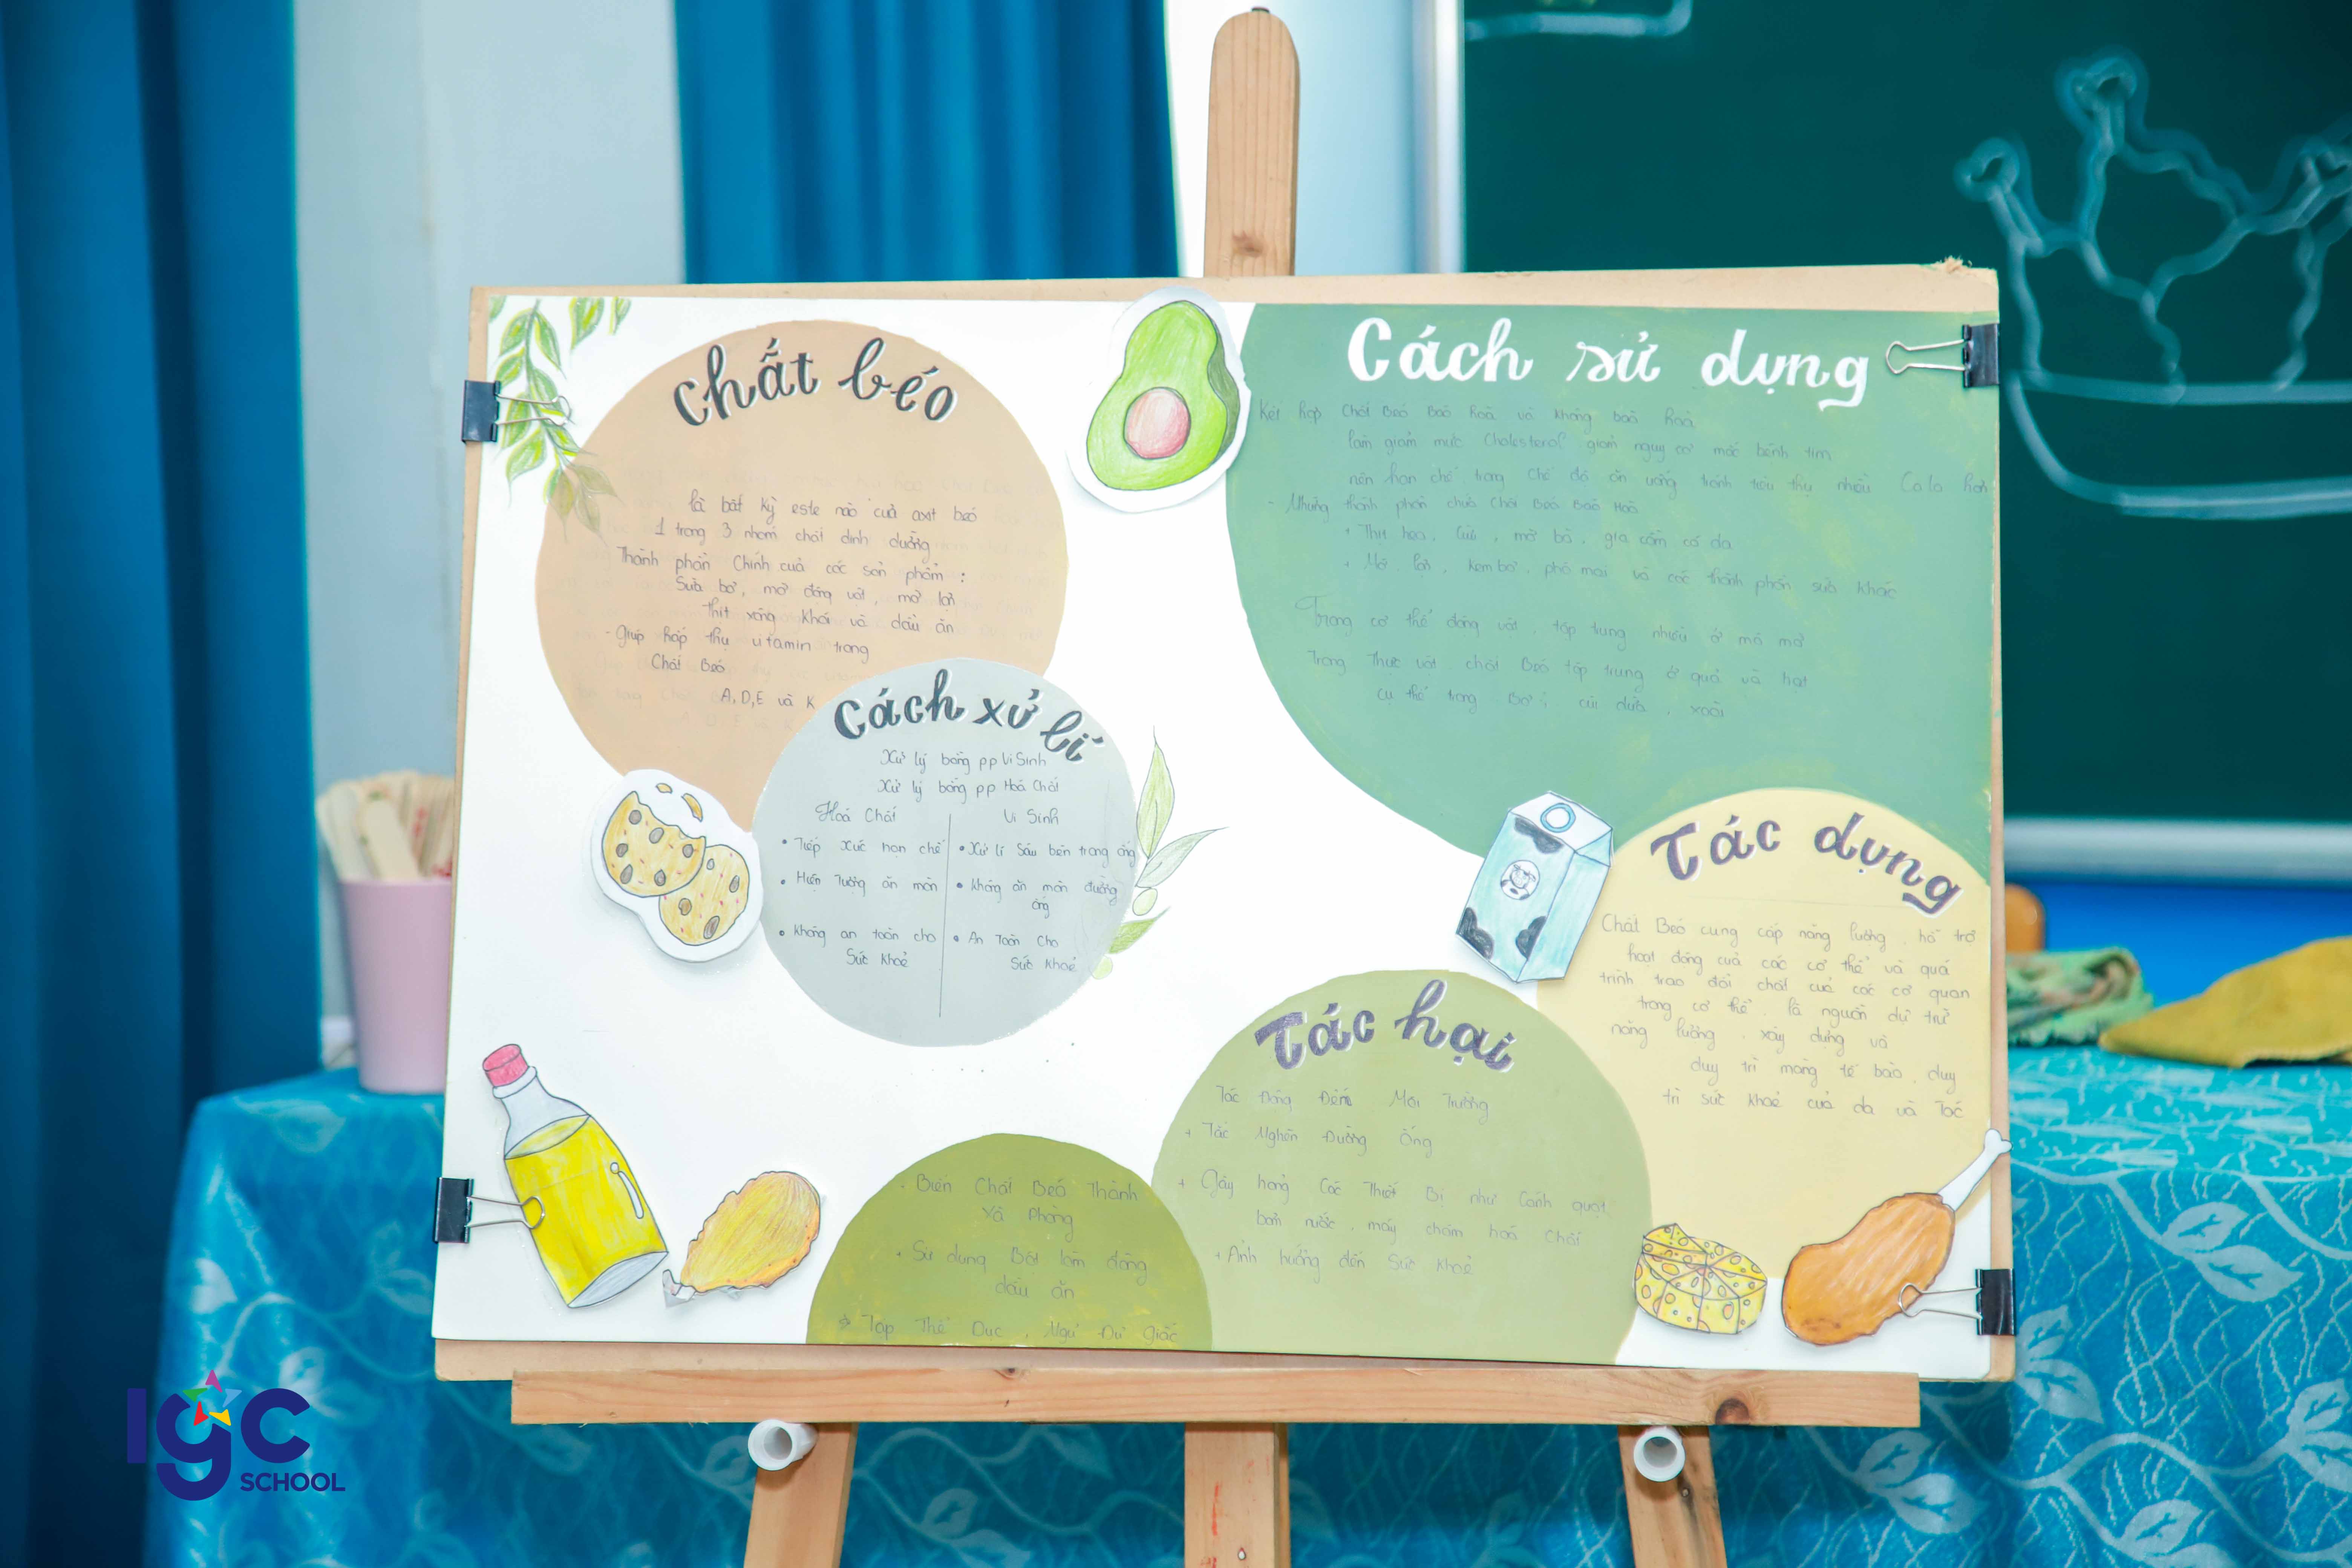 Chất béo
là bất kỳ este nào của axit béo
1 trong 3 nhóm chất dinh dưỡng
Thành phần Chính của các sản phẩm :
Sữa bơ, mỡ động vật, mỡ lợn
thịt xông khói và dầu ăn
- Giúp hấp thụ vitamin trong
Chất Béo
A, D, E và K
Cách xử lí
Xử lý bằng pp Vi Sinh
Xử lý bằng pp Hoá Chất
Hoá Chất
• Tiếp xúc hạn chế
• Hiện tượng ăn mòn
• Không an toàn cho
Sức Khoẻ
Vi Sinh
• Xử lí Sâu bên trong ống
• Không ăn mòn đường
ống
• An Toàn Cho
Sức khoẻ
Cách sử dụng
Kết hợp Chất Béo Bão hoà và không bão hoà
làm giảm mức Cholesterol giảm nguy cơ mắc bệnh tim
nên hạn chế trong chế độ ăn uống tránh tiêu thụ nhiều Calo hơn
- Những thành phần chứa Chất Béo Bão Hoà
+ Thịt heo, cừu, mỡ bò, gia cầm có da
+ Mỡ, lợn, kem bơ, phô mai và các thành phần sữa khác
Trong cơ thể động vật, tập trung nhiều ở mô mỡ
Trong thực vật, chất Béo tập trung ở quả và hạt
cụ thể trong Bơ, cùi dừa, xoài
Tác dụng
Chất Béo cung cấp năng lượng, hỗ trợ
hoạt động của các cơ thể và quá
trình trao đổi chất của các cơ quan
trong cơ thể, là nguồn dự trữ
năng lượng, xây dựng và
duy trì màng tế bào, duy
trì sức khoẻ của da và Tóc
Tác hại
Tác Động Đến Môi Trường
+ Tắc Nghẽn Đường Ống
+ Gây hỏng Các Thiết Bị như Cánh quạt,
bơm nước, máy châm hoá chất
+ Ảnh hưởng đến Sức khoẻ
- Biến Chất Béo Thành
Xà Phòng
+ Sử dụng Bột làm đông
dầu ăn
Tập Thể Dục, Ngủ Đủ Giấc
IGC
SCHOOL